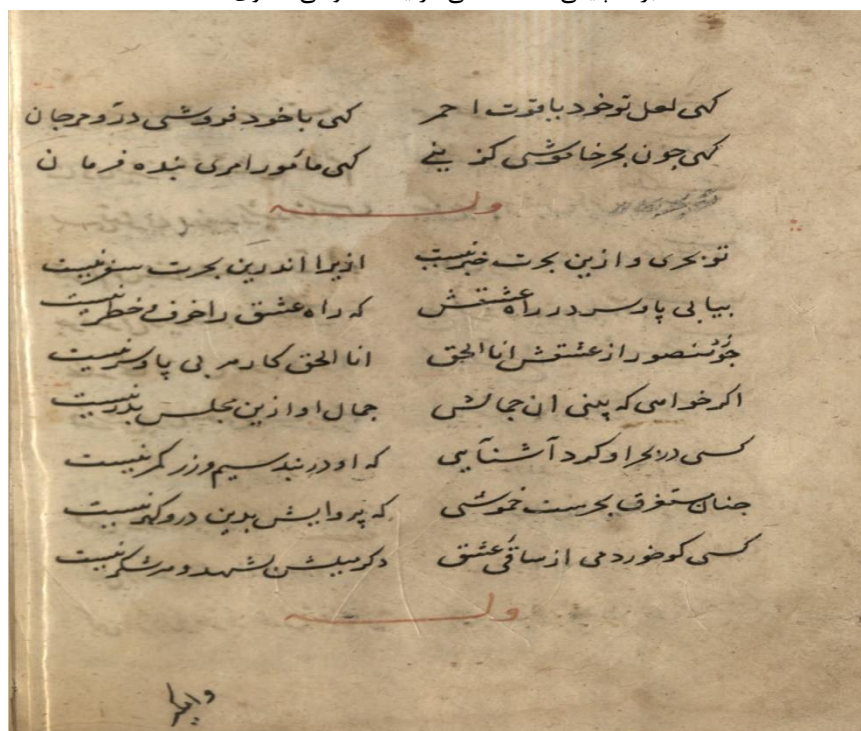 کهی لعل توخود یاقوت احمر کهی باخود فروشی در و مرجان
کهی جون بحر خاموشی کزینی کهی مأمور امری بنده فرمان
وله
تو بحری و ازین بحرت خبر نیست ازیرا اندرین بحرت سفر نیست
بیا بی پا و سر در راه عشقش که راه عشق را خوف و خطر نیست
جو منصور از عشقش انا الحق انا الحق کار هر بی پا و سر نیست
اکر خواهی که بینی ان جمالش جمال او ازین مجلس بدر نیست
کسی در بحر او کرد آشنایی که او در بند سیم و زر کمر نیست
جنان مستغرق بحرست خموشی که پروایش بدین در و کهر نیست
کسی کو خورد می از ساقئ عشق دکر میلش بشهد و هر شکر نیست
وله